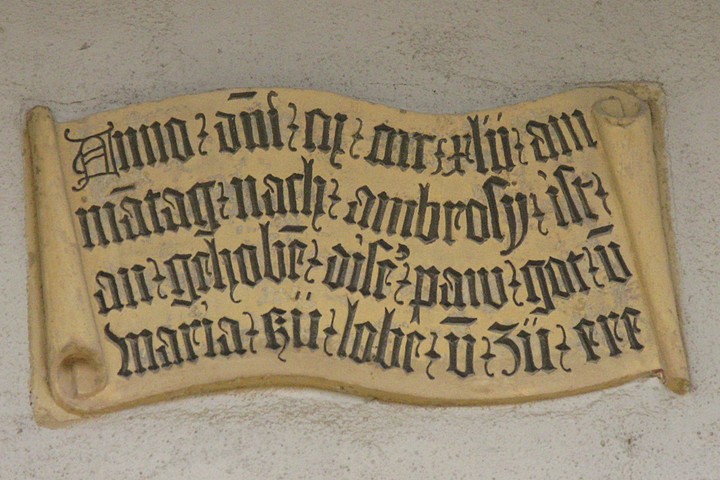 Anno dn̄i m cccc xlii am
mātag nach ambrosy ist
an gehobē diser paw got vn̄
maria zü lobe v̄ zü ere